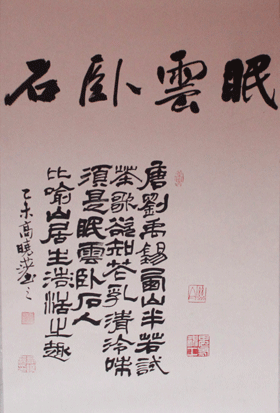 眠雲卧石
唐劉禹錫西山蘭若試
茶歌欲知花乳清泠味
須是眠雲卧石人
比喻山居生活之趣
乙未高曉